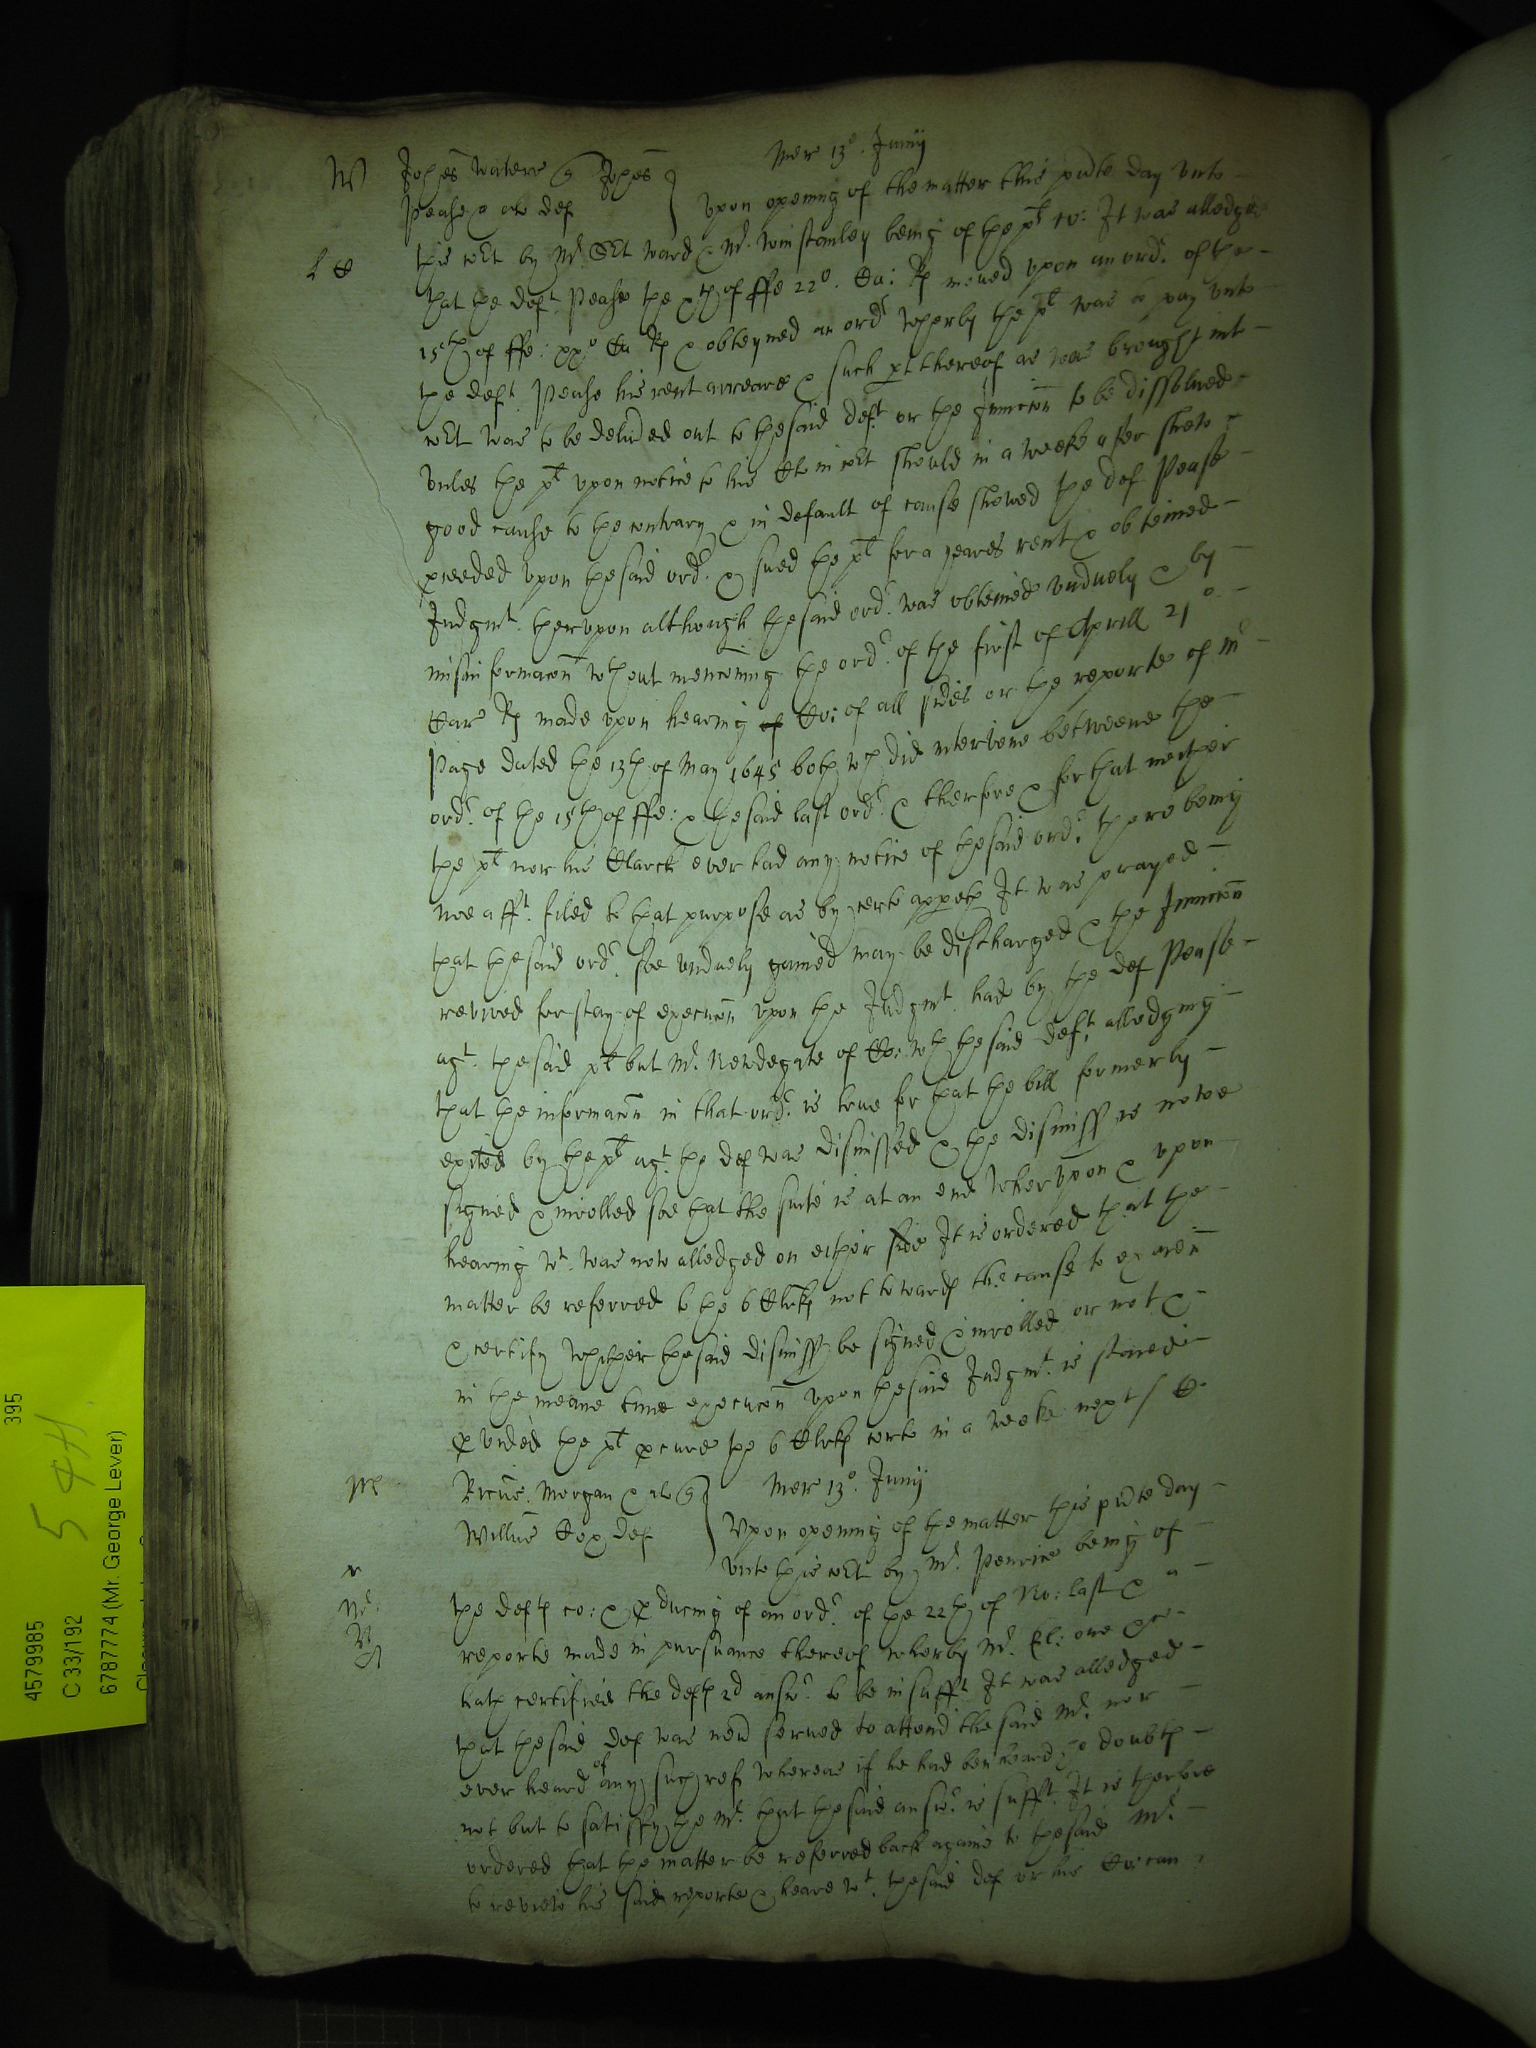 Mer 13o. Junij
W Johes Waters q Johes
Pease & al def
Upon opening of the matter this pnte day unto
this Cort by Mr. Sert Ward & Mr. Winstanley being of the plt co: It was alledged
that the deft. Pease the xth of ffe 22o. Car: Rs moved upon an ordr. of the
15th of ffe: xxo Car Rs & obteyned an ordr wherby the plt was to pay unto
the deft. Pease his rent arreare & such pt thereof as was brought into
Cort was to be delivred out to the said deft. or the Junccon to be dissolved
unles the plt upon notice to his Cl in Cort should in a weeke after shew
good cause to the contrary & in default of cause shewed the def Pease
pceeded upon the said ordr. & sued the plt for a yeares rent & obteined
Judgmt. therupon although the said ordr. was obteined unduely & by
misinformacon wthout menconing the ordr. of the first of Aprill 21o
Car Rs made upon hearing of Co: of all sides or the reporte of Mr
Page dated the 13th of May 1645 both wch did intervene betweene the
ordr. of the 15th of ffe: & the said last ordr. & therfore & for that neither
the plt nor his Clarck ever had any notice of the said ordr. there being
noe afft. filed to that purpose as by certe appeth It was prayed
that the said ordr. soe unduely gained may be discharged & the Junccon
revived for stay of execucon upon the Judgmt. had by the def Pease
agt. the said plt but Mr. Newdegate of Co: wth the said deft. alledging
that the informacon in that ordr. is true for that the bill formerly
exited by the plt agt. the def was dismissed & the dismiss is nowe
signed & inrolled soe that the suite is at an end Wherupon & upon
hearing wt. was now alledged on either side It is ordered that the
matter be referred to the 6 Clrks not towards the cause to examin
& certify whether the said dismiss be signed & inrolled or not &
in the meane time execucon upon the said Judgmt. is stayed
pvided the plt pcure the 6 Clrks certe in a weeke next
Mer 13o. Junij
Ricus Morgan & al q
Willus Cox def
Upon opening of the matter this pnte day
unto this Cort by Mr. Penrice being of
the defts co: & pducing of an ordr. of the 22th of No: last & a
reporte made in pursuance thereof wherby Mr. El: one &c
hath certified the defts 2d answ. to be insufft. It was alledged
that the said def was nevr served to attend the said Mr. nor
ever heard of any such ref whereas if he had ben heard he doubts
not but to satisfy the Mr. that the said answ. is sufft. It is therfore
ordered that the matter be referred back againe to the said Mr.
to review his said reporte & heare wt. the said def or his Co: can
395
5 44.
4579985
C 33/192
6787774 (Mr. George Lever)